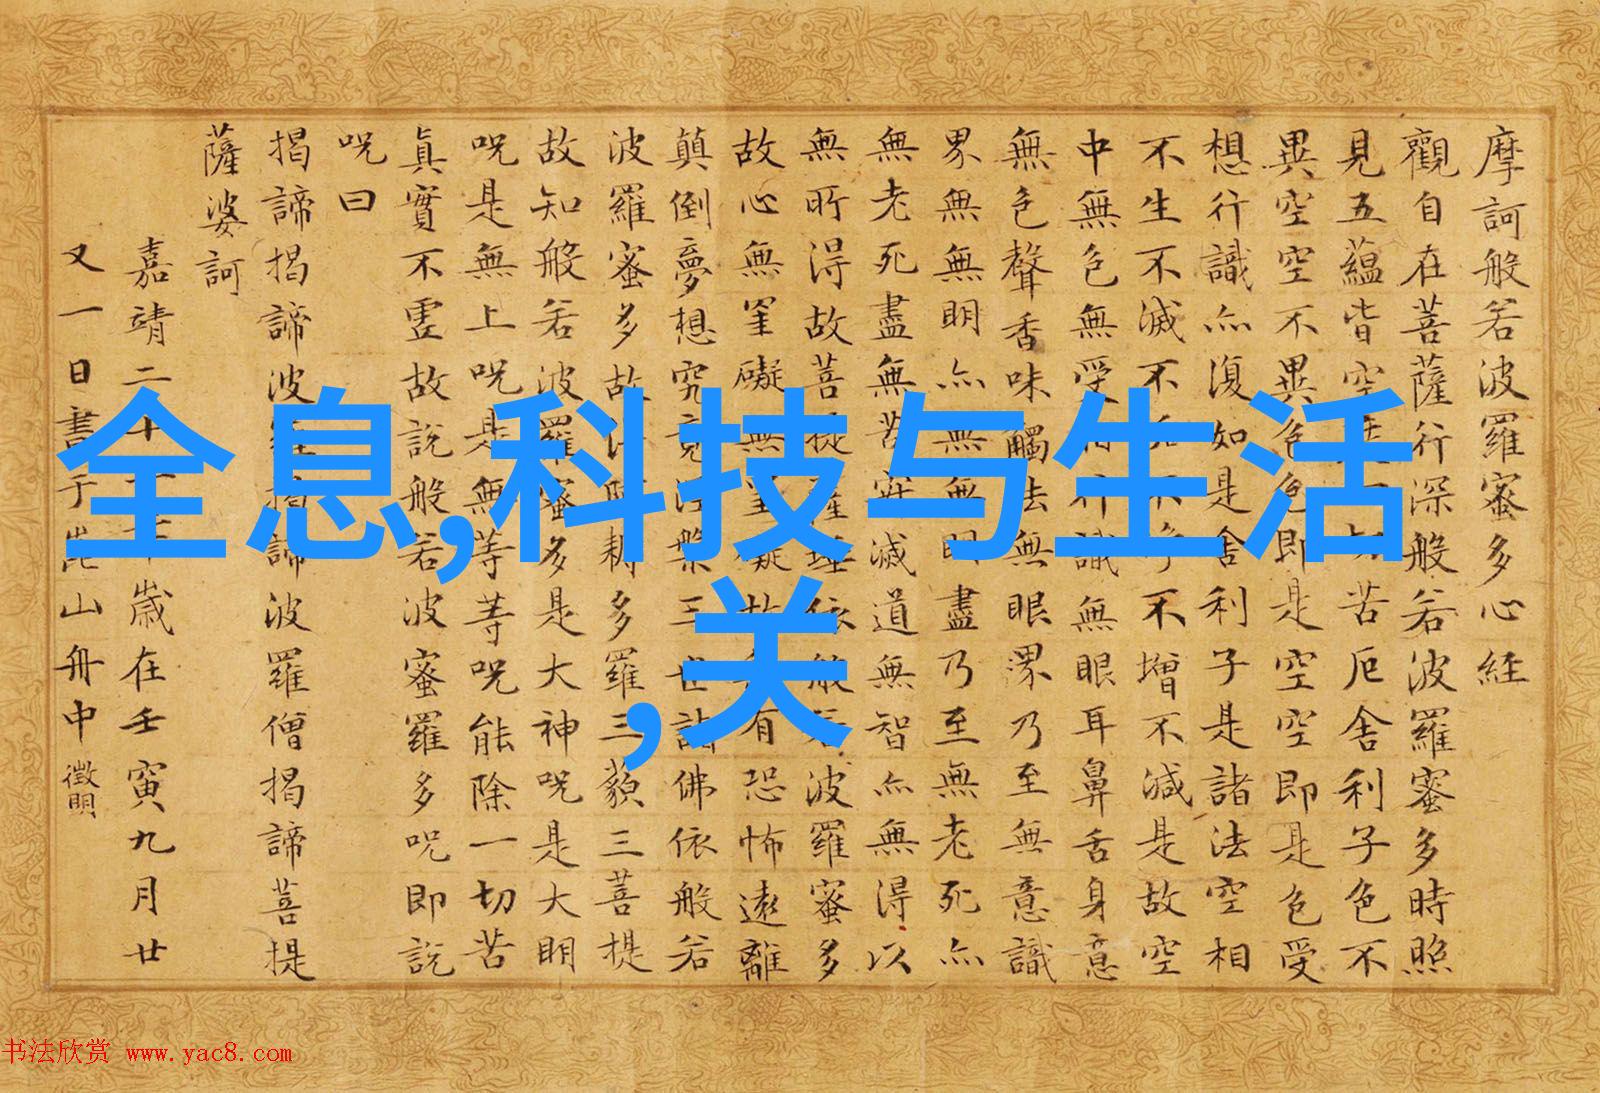 摩訶般若波羅蜜多心経
觀自在菩薩行深般若波羅蜜多時照
見五蘊皆空切苦厄舍利子色不
異空空不異色色即是空空即是色受
想行識亦復如是舍利子是諸法空相
不生不滅不不不增不減是故空
中無色無受行識無眼耳鼻舌身意
無色聲香味觸法無眼界乃至無意識
界無無明亦無無明盡乃至無老死亦
無老死盡無苦滅道無智亦無得以
無所得故菩提薩埵依般若波羅蜜多
故心無罣礙無罣礙故有恐怖遠離
顛倒夢想究竟涅槃三世諸佛依般若
波羅蜜多故耨多羅三藐三菩提
故知般若波羅蜜多是大神呪是大明
呪是無上呪是無等等呪能除一切苦
真實不虛故説般若波羅蜜多呪即説
呪曰
揭諦揭諦波羅揭諦波羅僧揭諦菩提
薩婆訶
嘉靖二十歲在壬寅九月廿
又一日書于崑山舟中 徵明
全息,科技与生活
,关
书法欣赏 www.yac8.com